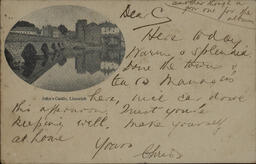 another though a
for one for the
album
Dear C
Here today
Warm & splendid
Done the town &
John's Castle, Limerick
here, nice car drive
this afternoon. Trust you're
keeping well. make yourself
at home
Yours
Chris